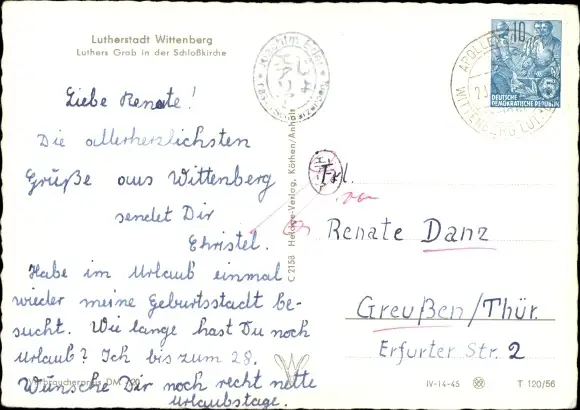 Lutherstadt Wittenberg
Luthers Grab in der Schloßkirche
Liebe Renate!
Die allerherzlichsten
Grüße aus Wittenberg
sendet Dir
Christel.
Habe im Urlaub einmal
wieder meine Geburtsstadt be-
sucht. Wie lange hast Du noch
Urlaub? Ich bis zum 28.
Wünsche Dir noch recht nette
Urlaubstage.
Verbraucherpreis DM
C 2158 Heldge-Verlag, Köthen/Anhalt
10
5
DEUTSCHE
DEMOKRATISCHE REPUBLIK
WITTENBERG LUT
Frl.
Renate Danz
Greußen/Thür.
Erfurter Str. 2
IV-14-45
T 120/56